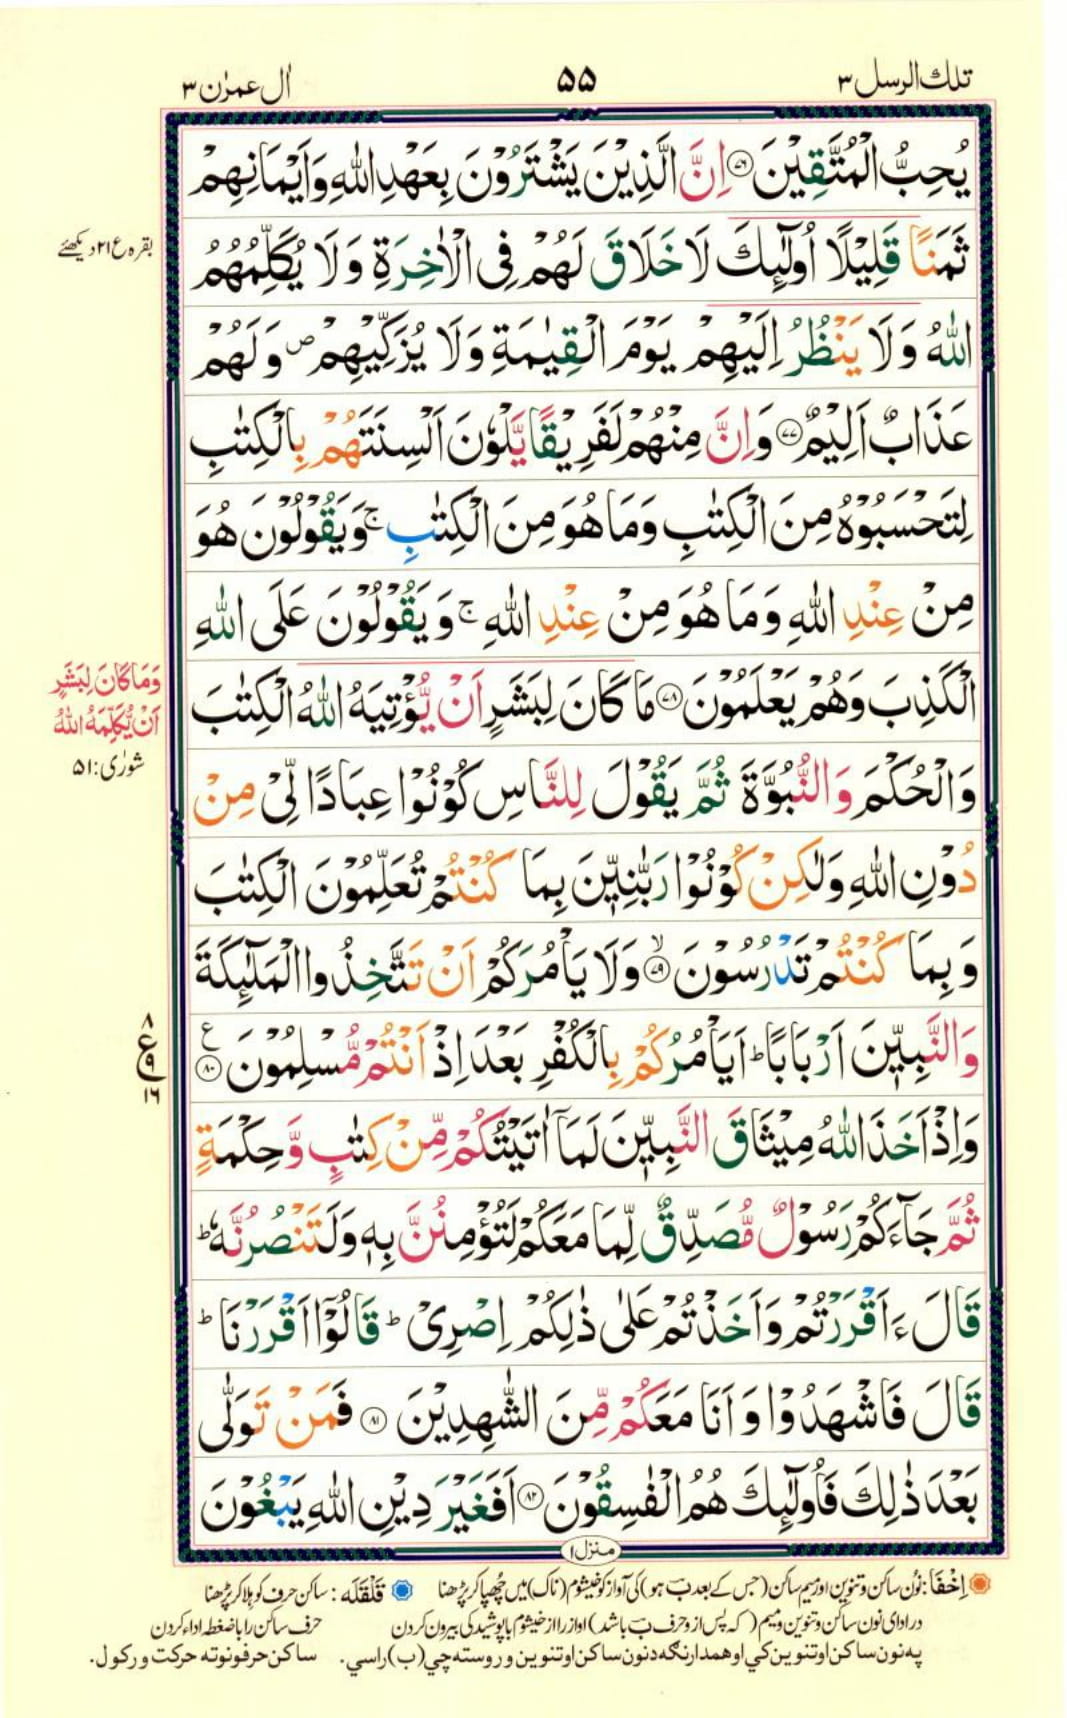 تلك الرسل ٣
۵۵
اٰل عمرٰن ٣
يُحِبُّ الْمُتَّقِيْنَ ﴿۷۶﴾ اِنَّ الَّذِيْنَ يَشْتَرُوْنَ بِعَهْدِ اللّٰهِ وَاَيْمَانِهِمْ
ثَمَنًا قَلِيْلًا اُولٰٓئِكَ لَا خَلَاقَ لَهُمْ فِى الْاٰخِرَةِ وَلَا يُكَلِّمُهُمُ
بقرہ ع ۲۱ دیکھئے
اللّٰهُ وَلَا يَنْظُرُ اِلَيْهِمْ يَوْمَ الْقِيٰمَةِ وَلَا يُزَكِّيْهِمْ ۪ وَلَهُمْ
عَذَابٌ اَلِيْمٌ ﴿۷۷﴾ وَاِنَّ مِنْهُمْ لَفَرِيْقًا يَّلْوٗنَ اَلْسِنَتَهُمْ بِالْكِتٰبِ
لِتَحْسَبُوْهُ مِنَ الْكِتٰبِ وَمَا هُوَ مِنَ الْكِتٰبِ ۚ وَيَقُوْلُوْنَ هُوَ
مِنْ عِنْدِ اللّٰهِ وَمَا هُوَ مِنْ عِنْدِ اللّٰهِ ۚ وَيَقُوْلُوْنَ عَلَى اللّٰهِ
الْكَذِبَ وَهُمْ يَعْلَمُوْنَ ﴿۷۸﴾ مَا كَانَ لِبَشَرٍ اَنْ يُّؤْتِيَهُ اللّٰهُ الْكِتٰبَ
وَمَا كَانَ لِبَشَرٍ
اَنْ يُّكَلِّمَهُ اللّٰهُ
شورٰی: ۵۱
وَالْحُكْمَ وَالنُّبُوَّةَ ثُمَّ يَقُوْلَ لِلنَّاسِ كُوْنُوْا عِبَادًا لِّىْ مِنْ
دُوْنِ اللّٰهِ وَلٰكِنْ كُوْنُوْا رَبّٰنِيّٖنَ بِمَا كُنْتُمْ تُعَلِّمُوْنَ الْكِتٰبَ
وَبِمَا كُنْتُمْ تَدْرُسُوْنَ ۙ﴿۷۹﴾ وَلَا يَاْمُرَكُمْ اَنْ تَتَّخِذُوا الْمَلٰٓئِكَةَ
وَالنَّبِيّٖنَ اَرْبَابًا ؕ اَيَاْمُرُكُمْ بِالْكُفْرِ بَعْدَ اِذْ اَنْتُمْ مُّسْلِمُوْنَ ﴿۸۰﴾ ع
۸
ع ۹
۱۶
وَاِذْ اَخَذَ اللّٰهُ مِيْثَاقَ النَّبِيّٖنَ لَمَاۤ اٰتَيْتُكُمْ مِّنْ كِتٰبٍ وَّحِكْمَةٍ
ثُمَّ جَآءَكُمْ رَسُوْلٌ مُّصَدِّقٌ لِّمَا مَعَكُمْ لَتُؤْمِنُنَّ بِهٖ وَلَتَنْصُرُنَّهٗ ؕ
قَالَ ءَاَقْرَرْتُمْ وَاَخَذْتُمْ عَلٰى ذٰلِكُمْ اِصْرِىْ ؕ قَالُوْۤا اَقْرَرْنَا ؕ
قَالَ فَاشْهَدُوْا وَاَنَا مَعَكُمْ مِّنَ الشّٰهِدِيْنَ ﴿۸۱﴾ فَمَنْ تَوَلّٰى
بَعْدَ ذٰلِكَ فَاُولٰٓئِكَ هُمُ الْفٰسِقُوْنَ ﴿۸۲﴾ اَفَغَيْرَ دِيْنِ اللّٰهِ يَبْغُوْنَ
منزل ۱
اِخْفَا: نون ساکن و تنوین اور میم ساکن (جس کے بعد بؔ ہو) کی آواز کو خیشوم (ناک) میں چھپا کر پڑھنا قَلْقَلَه: ساکن حرف کو ہلا کر پڑھنا
در ادای نون ساکن و تنوین و میم (که پس از و حرف بؔ باشد) آواز را از خیشوم با پوشیدگی بیرون کردن حرف ساکن را با ضغط اداء کردن
په نون ساکن او تنوین کي او همدارنګه د نون ساکن او تنوین وروسته چي (ب) راسي. ساکن حرفونو ته حرکت ورکول.